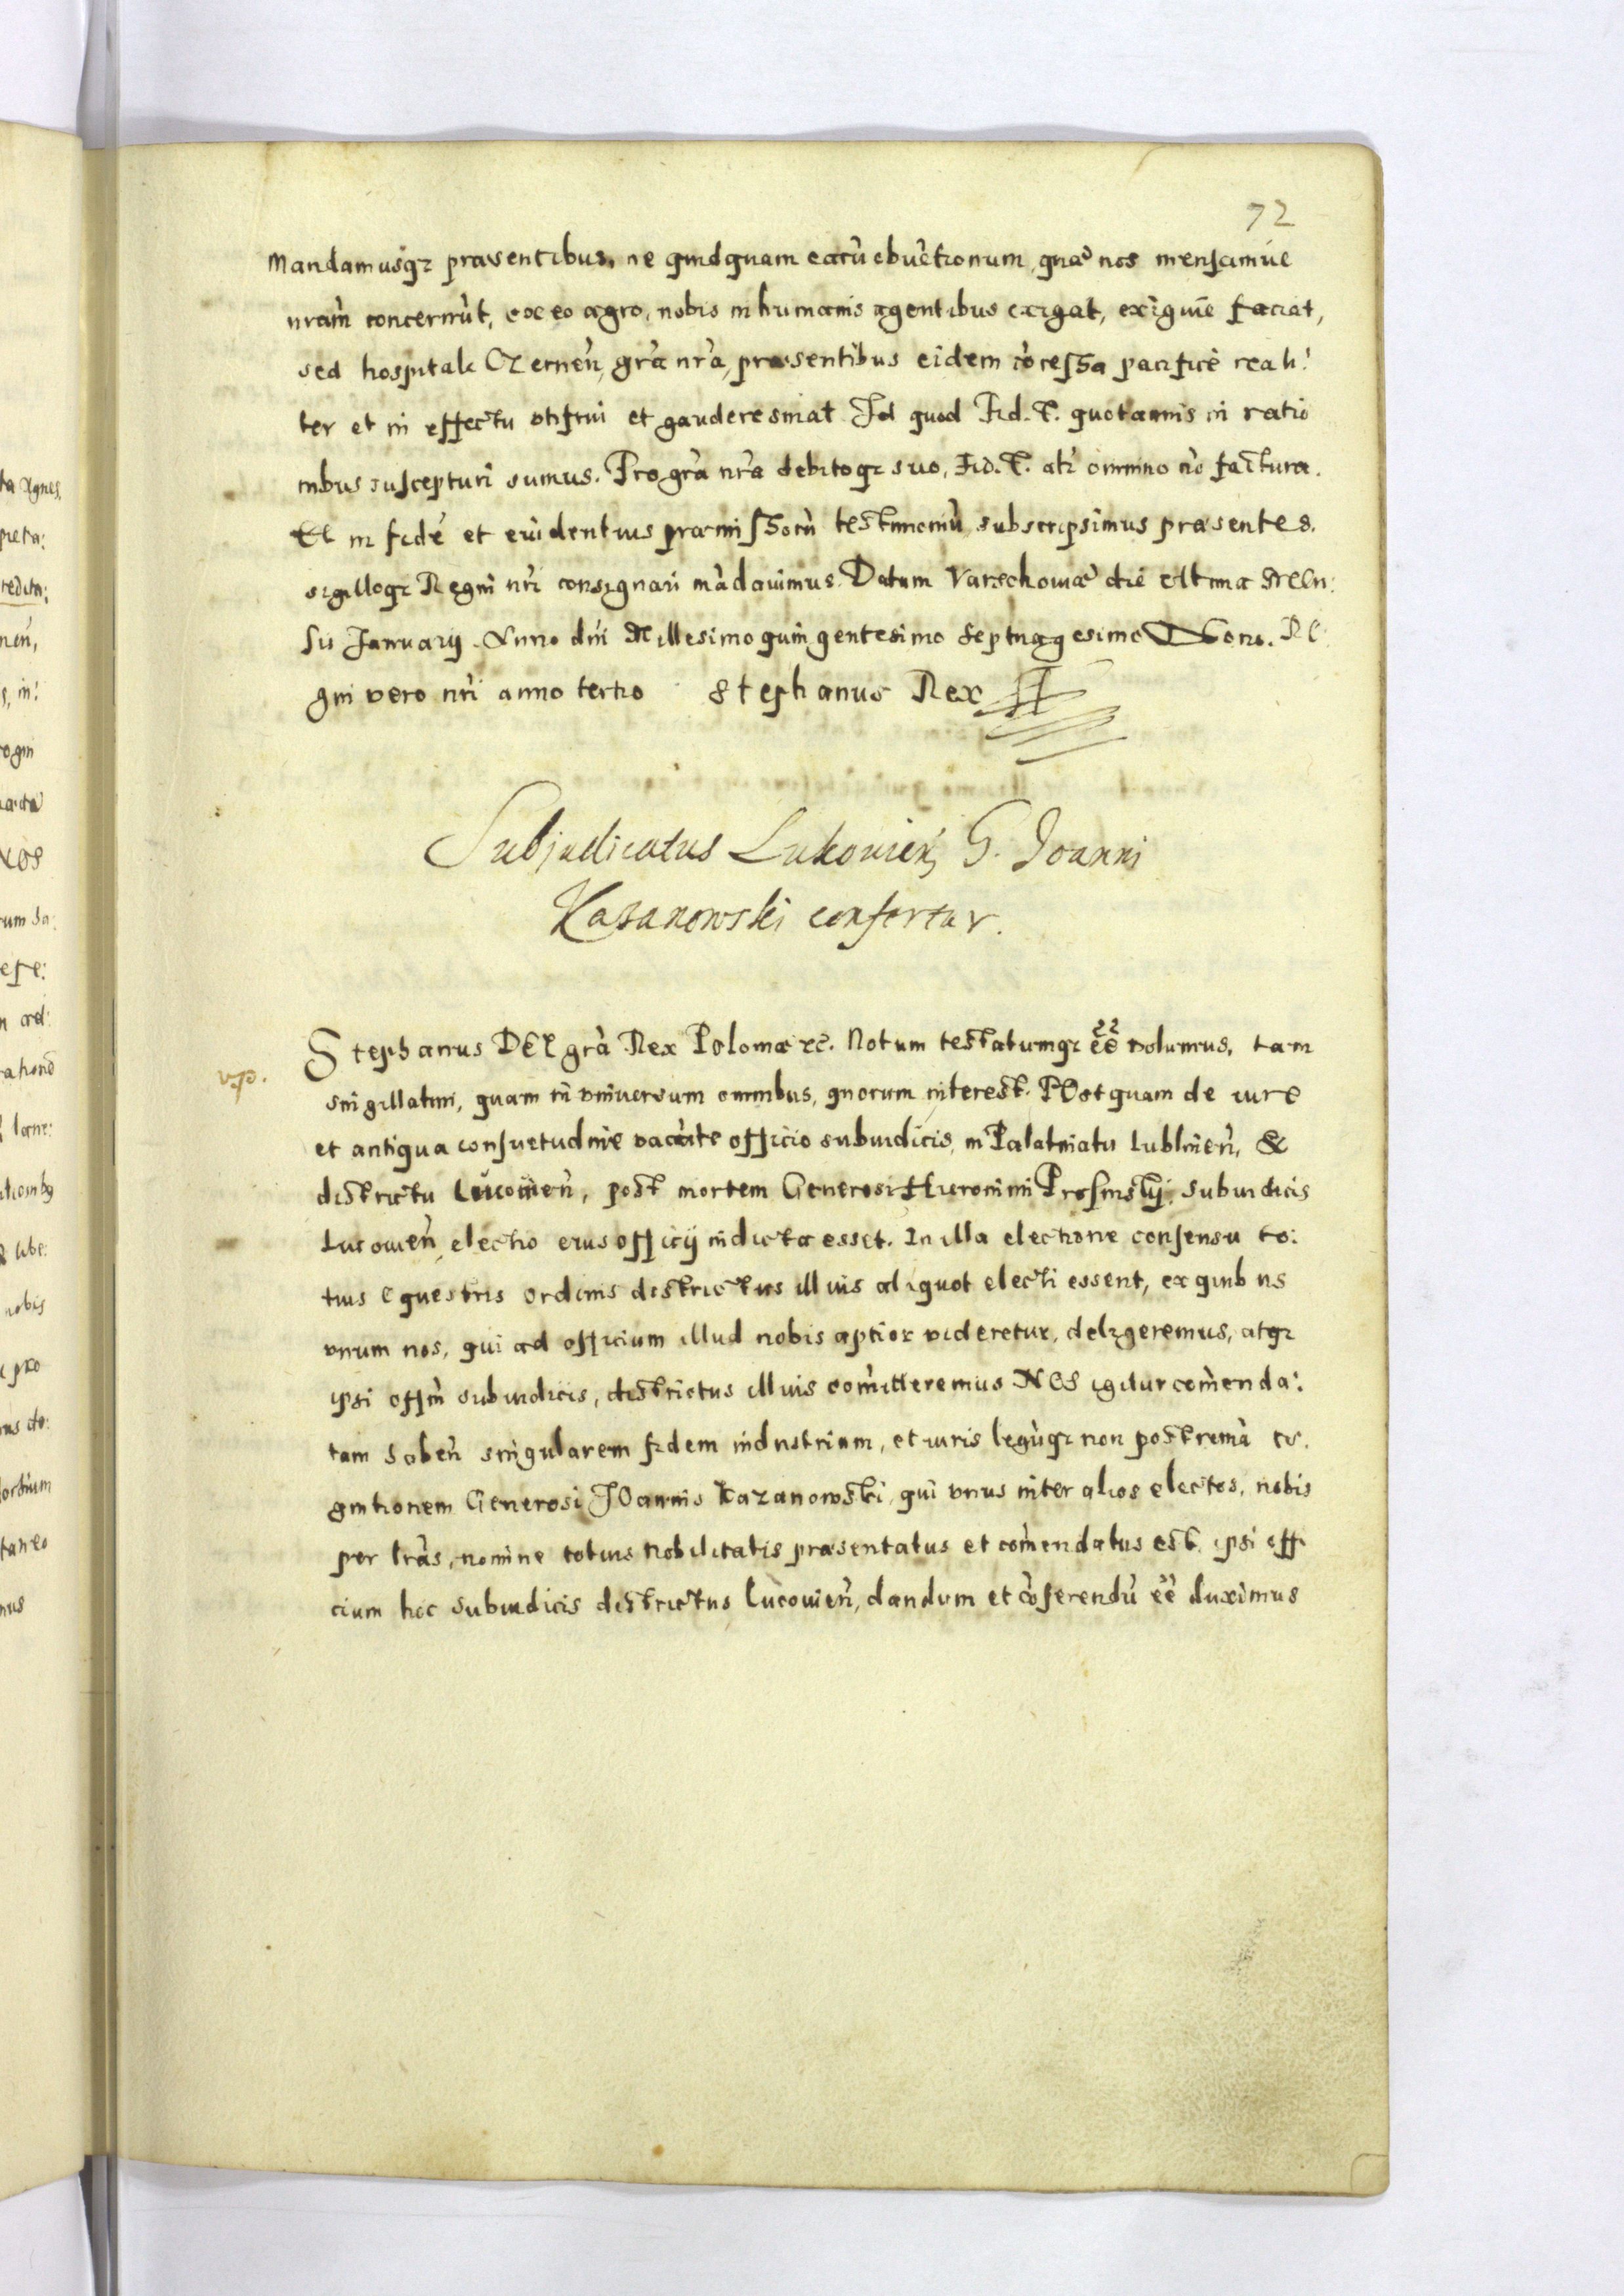 72
Mandamusqz praesentibus, ne quidquam earũ obuẽtionum, quae nos mensamue
nram̃ concernũt, ex eo agro, nobis in humanis agentibus exigat, exiguíe faciat,
sed hospitale Czernen̄, gra̅ nra̅, praesentibus eidem cõcessa pacificè reali:
ter et in effectu vtifrui et gaudere sinat Id quod Fid. T. quotannis in ratio
nibus suscepturi sumus. Pro gra̅ nra̅ debitoqz suo, Fid. T. alr̃ omnino nõ factura.
Et in fidẽ et euidentius praemissorũ testimoniũ subscripsimus praesentes.
sigilloqz Regni nri consignari mãdauimus. Datum Varschouiae die vltima Men:
sis Januarij. Anno dñi Millesimo quingentesimo septuagesimo Nono. Re
gni vero nri anno tertio Stephanus Rex
Subjudicatus Lukovien, G. Joanni
Kazanowski confertur.
v.p.
Stephanus DEI grã Rex Poloniae &c. Notum testatumqz eẽ volumus, tam
singillatim, quam in vniuersum omnibus, quorum interest. POstquam de iure
et antiqua consuetudine vacãte officio subiudicis, in Palatinatu Lublinen̄, &
districtu Lucouien̄, post mortem Generosi Hieronimi subiudicis
Lucouien̄ electio eius officij indicta esset. In illa electione consensu to:
tius equestris ordinis districtus illius aliquot electi essent, ex quibus
vnum nos, qui ad officium illud nobis aptior videretur, deligeremus, atqz
ipsi offm̃ subiudicis, districtus illius com̃itteremus NOS igitur com̃enda:
tam haben̄ singularem fidem industriam, et iuris legũqz non postremã co.
gnitionem Generosi JOannis Kazanowski, qui vnus inter alios electos, nobis
per lrãs, nomine totius nobilitatis praesentatus et com̃endatus est. ipsi offi
cium hoc subiudicis districtus Lucouien̄, dandum et cõferendũ eẽ duximus